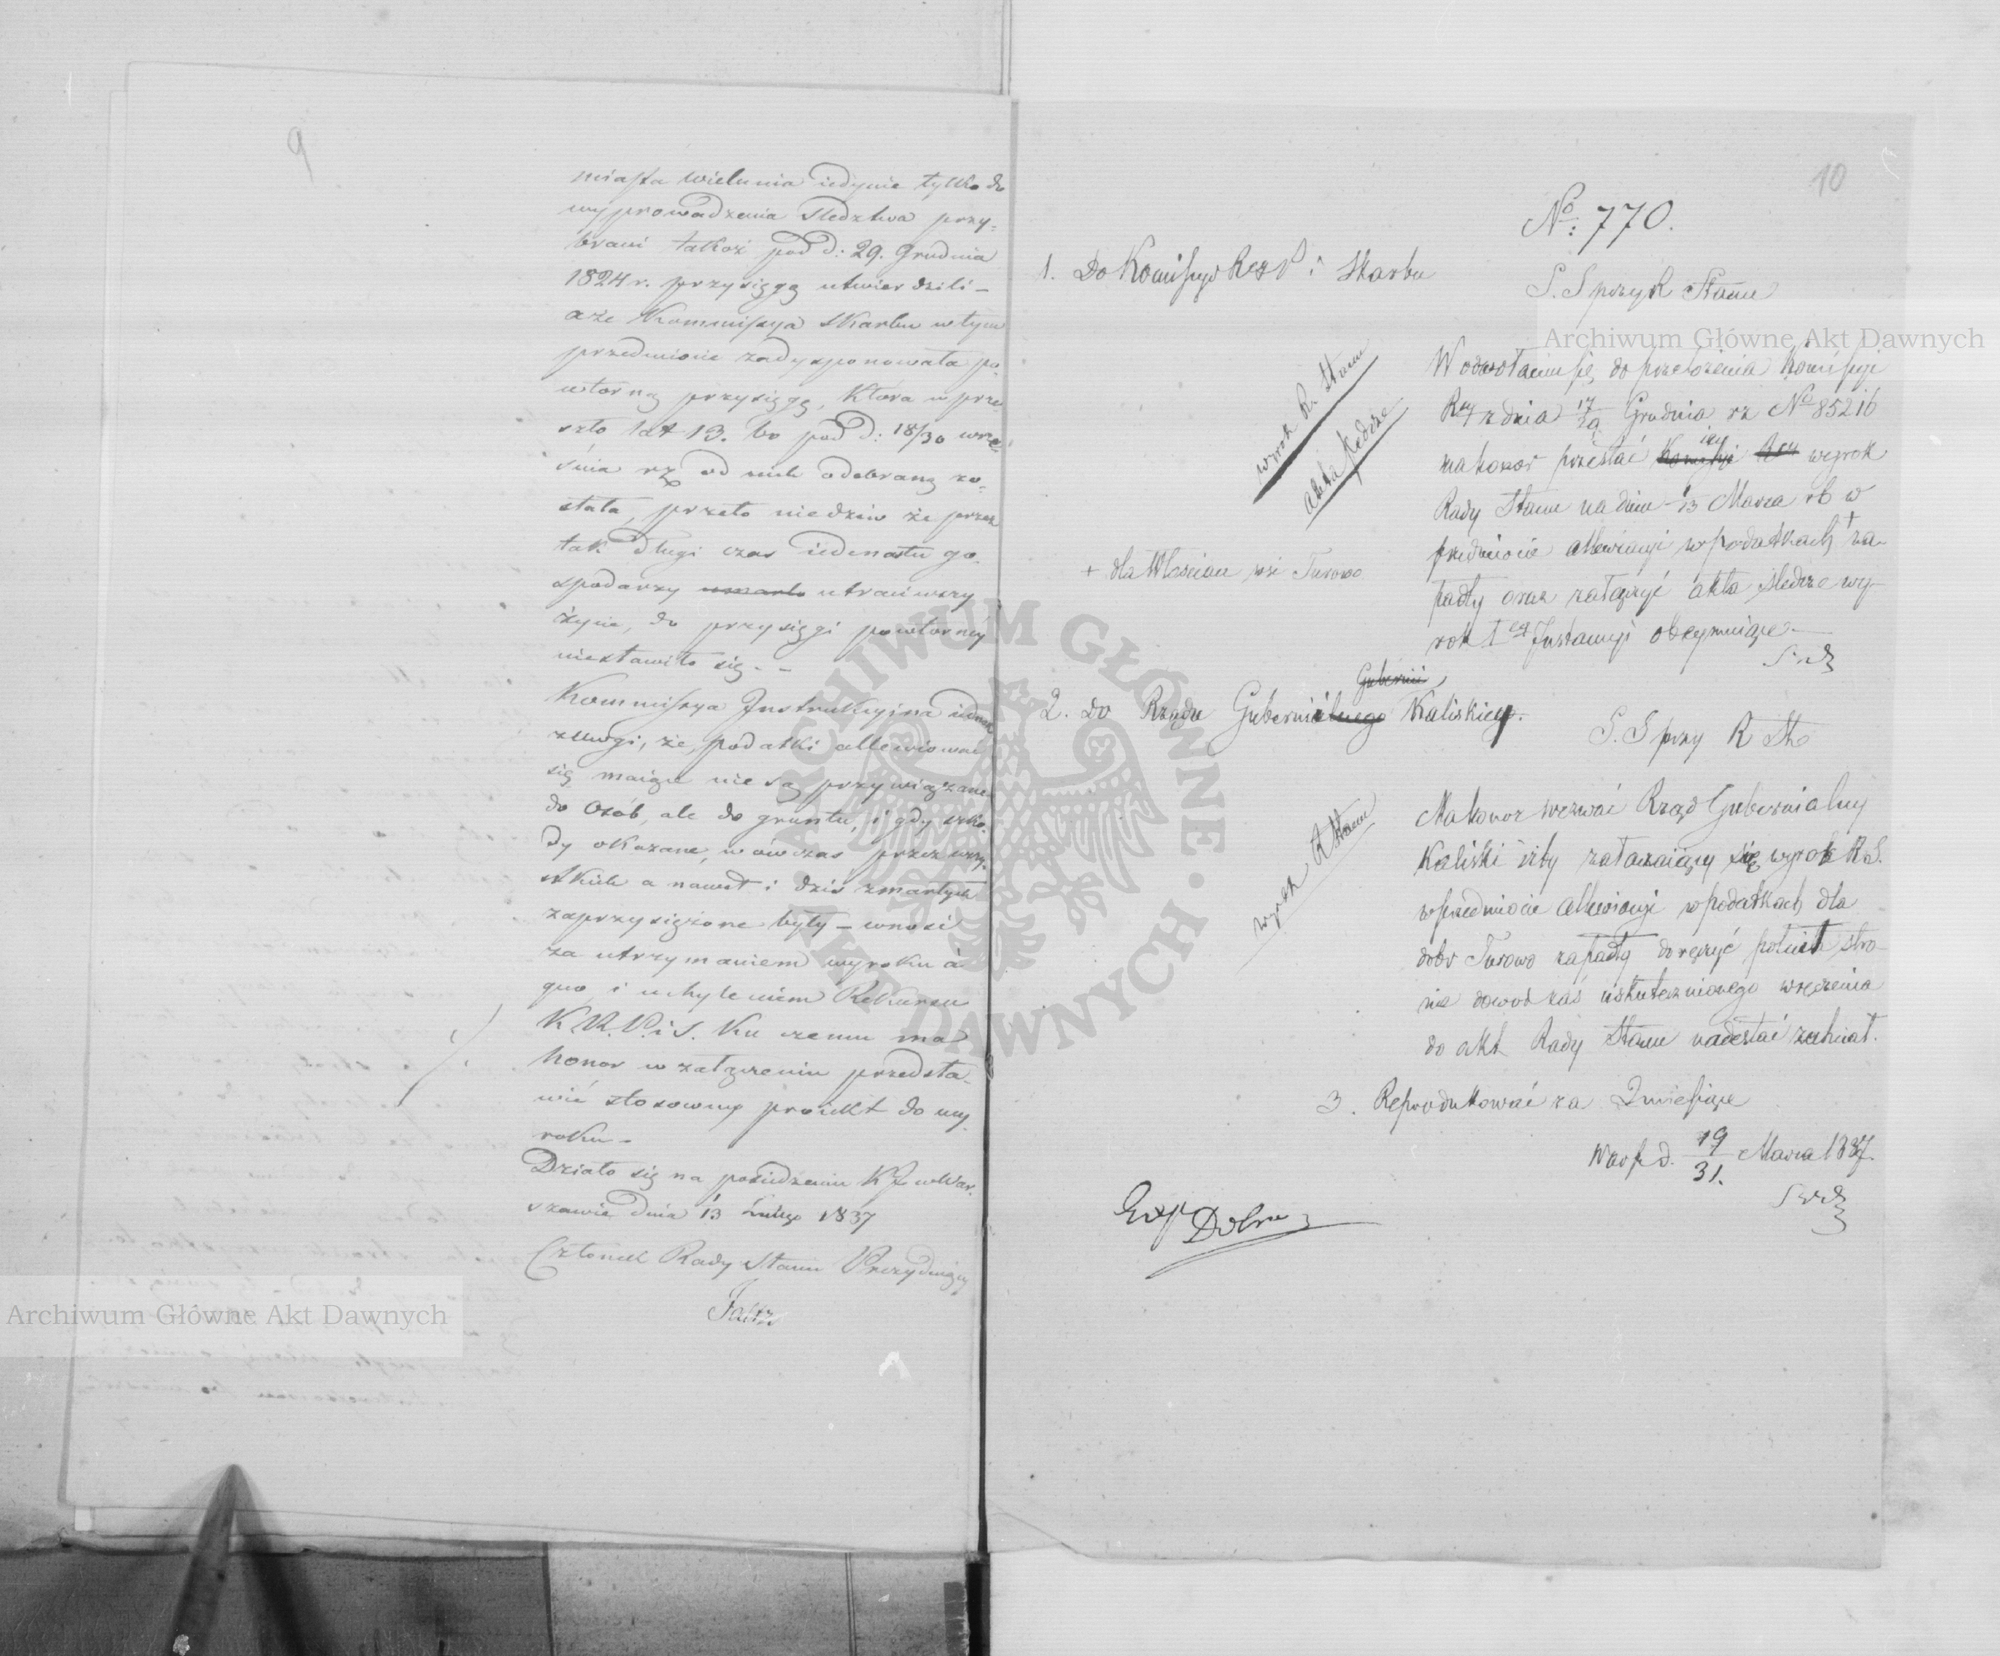 9
miasta Wielunia iedynie tylko do
wyprowadzenia Sledztwa przy=
brani takoż pod d: 29. Grudnia
1824 r. przysięgą utwierdzili –
a że Kommissya Skarbu w tym
przedmiocie zadysponowała po
wtorną przysięgę, która w prze
szło lat 13. bo pod d: 18/30 wrze
śnia rz od nich odebraną zo-
stała, przeto niedziw że przez
tak długi czas iedenastu go-
spodarzy umarło utraciwszy
życie, do przysięgi powtorney
niestawiło się. –
Kommissya Instrukcyina
zwagi, że podatki allewiować
się maiące nie są przywiązane
do osób, ale do gruntu, i gdy szko-
dy okazane, wówczas przez wszy-
stkich a nawet i dziś zmarłych
zaprzysiężone były – wnosi
za utrzymaniem wyroku à
quo i uchyleniem Rekursu
K.R.P. i S. Ku czemu ma
honor w załączeniu przedsta-
wić stosowny proiekt do wy
roku –
Działo się na posiedzeniu K. J. w War-
szawie dnia 13 Lutego 1837
Członek Rady Stanu Prezyduiący
Faltz
10
No: 770.
1. Do Komissyi Rząd P i Skarbu
S. S przy R Stanu
wyrok R. Stanu
akta śledcze
W odwołaniu się do przełożenia Komisyi
Rzą z dnia 17/29 Grudnia rz No 85216
ma honor przesłać Komisyi Rzą iey wyrok
Rady Stanu na dniu 13 Marca rb w
przedmiocie allewiacyi w podatkach + za-
padły oraz załączyć akta śledcze wy-
rok I ey Instancyi obeymuiące –
+ dla Włościan wsi Turowa
2. do Rządu Gubernialnego Gubernii Kaliskiey.
S. S przy R Stu
wyrok R Stanu
Ma honor wezwać Rząd Gubernialny
Kaliski iżby załączaiący się wyrok R.S.
w przedmiocie allewiacyi w podatkach dla
dobr Turowo zapadły doręczyć
nie dowod zaś uskutecznionego wręczenia
do akt Rady Stanu nadesłać zechciał.
3. Reprodukować za 2 miesiące
Wars d. 19/31. Marca 1837.